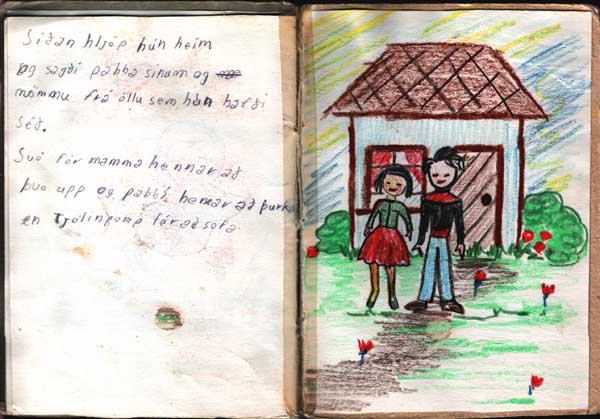 Síðan hljóp hún heim
og sagði pabba sinum og
mömmu frá öllu sem hún hafði
séð.
Svo fór mamma hennar að
þvo upp og pabbi hennar að þurk
en fór að sofa.